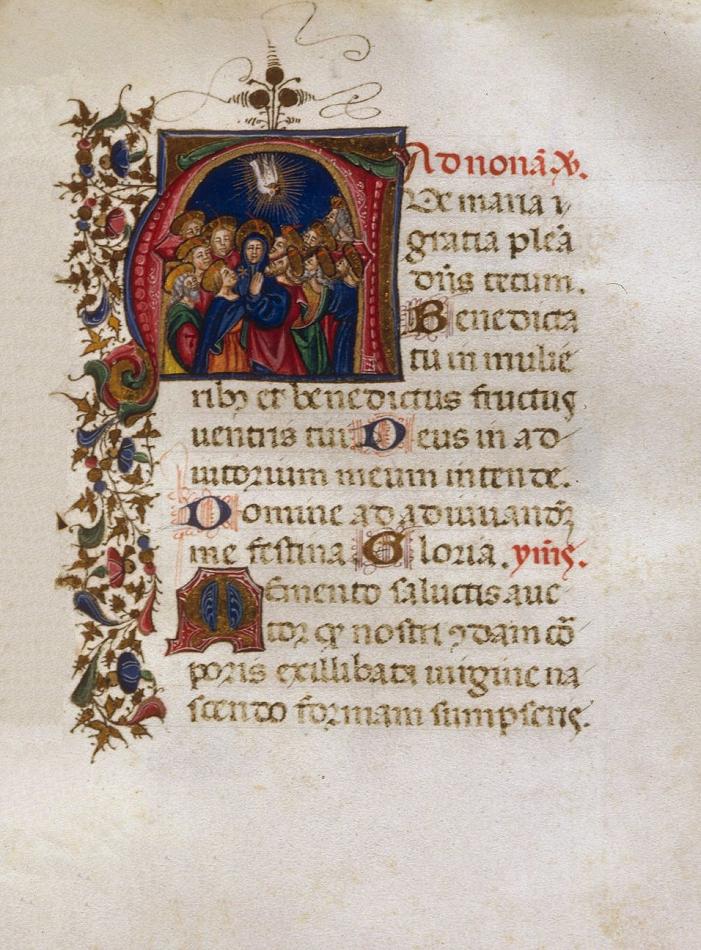 Ad nonã. x̃.
Ve maria ı
gratia pleã
dñs tecum.
Benedicta
tu in mulie
ribꝫ et benedictus fructus
uentris tui. Deus in ad
iutorium meum intende.
Domine ad adiuuandũ
me festina. Gloria. yms.
Memento salutis auc
tor qꝫ nostri ꝯdam cõ
poris ex illibata uirgine na
scendo formam sumpseris.